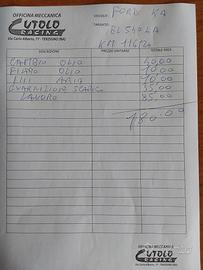 OFFICINA MECCANICA
CUTOLO
RACING
Via Carlo Alberto, 77 - TERZIGNO (NA)
VEICOLO: FORD KA
TARGATO:
KM 116
DESCRIZIONE PREZZO UNITARIO TOTALE EURO
CAMBIO OLIO 40,00
FILTRO OLIO 10,00
FILT ARIA 10,00
GUARNIZIONE SCARICO 35,00
LAVORO 85,00
180.00
OFFICINA MECCANICA
CUTOLO
RACING